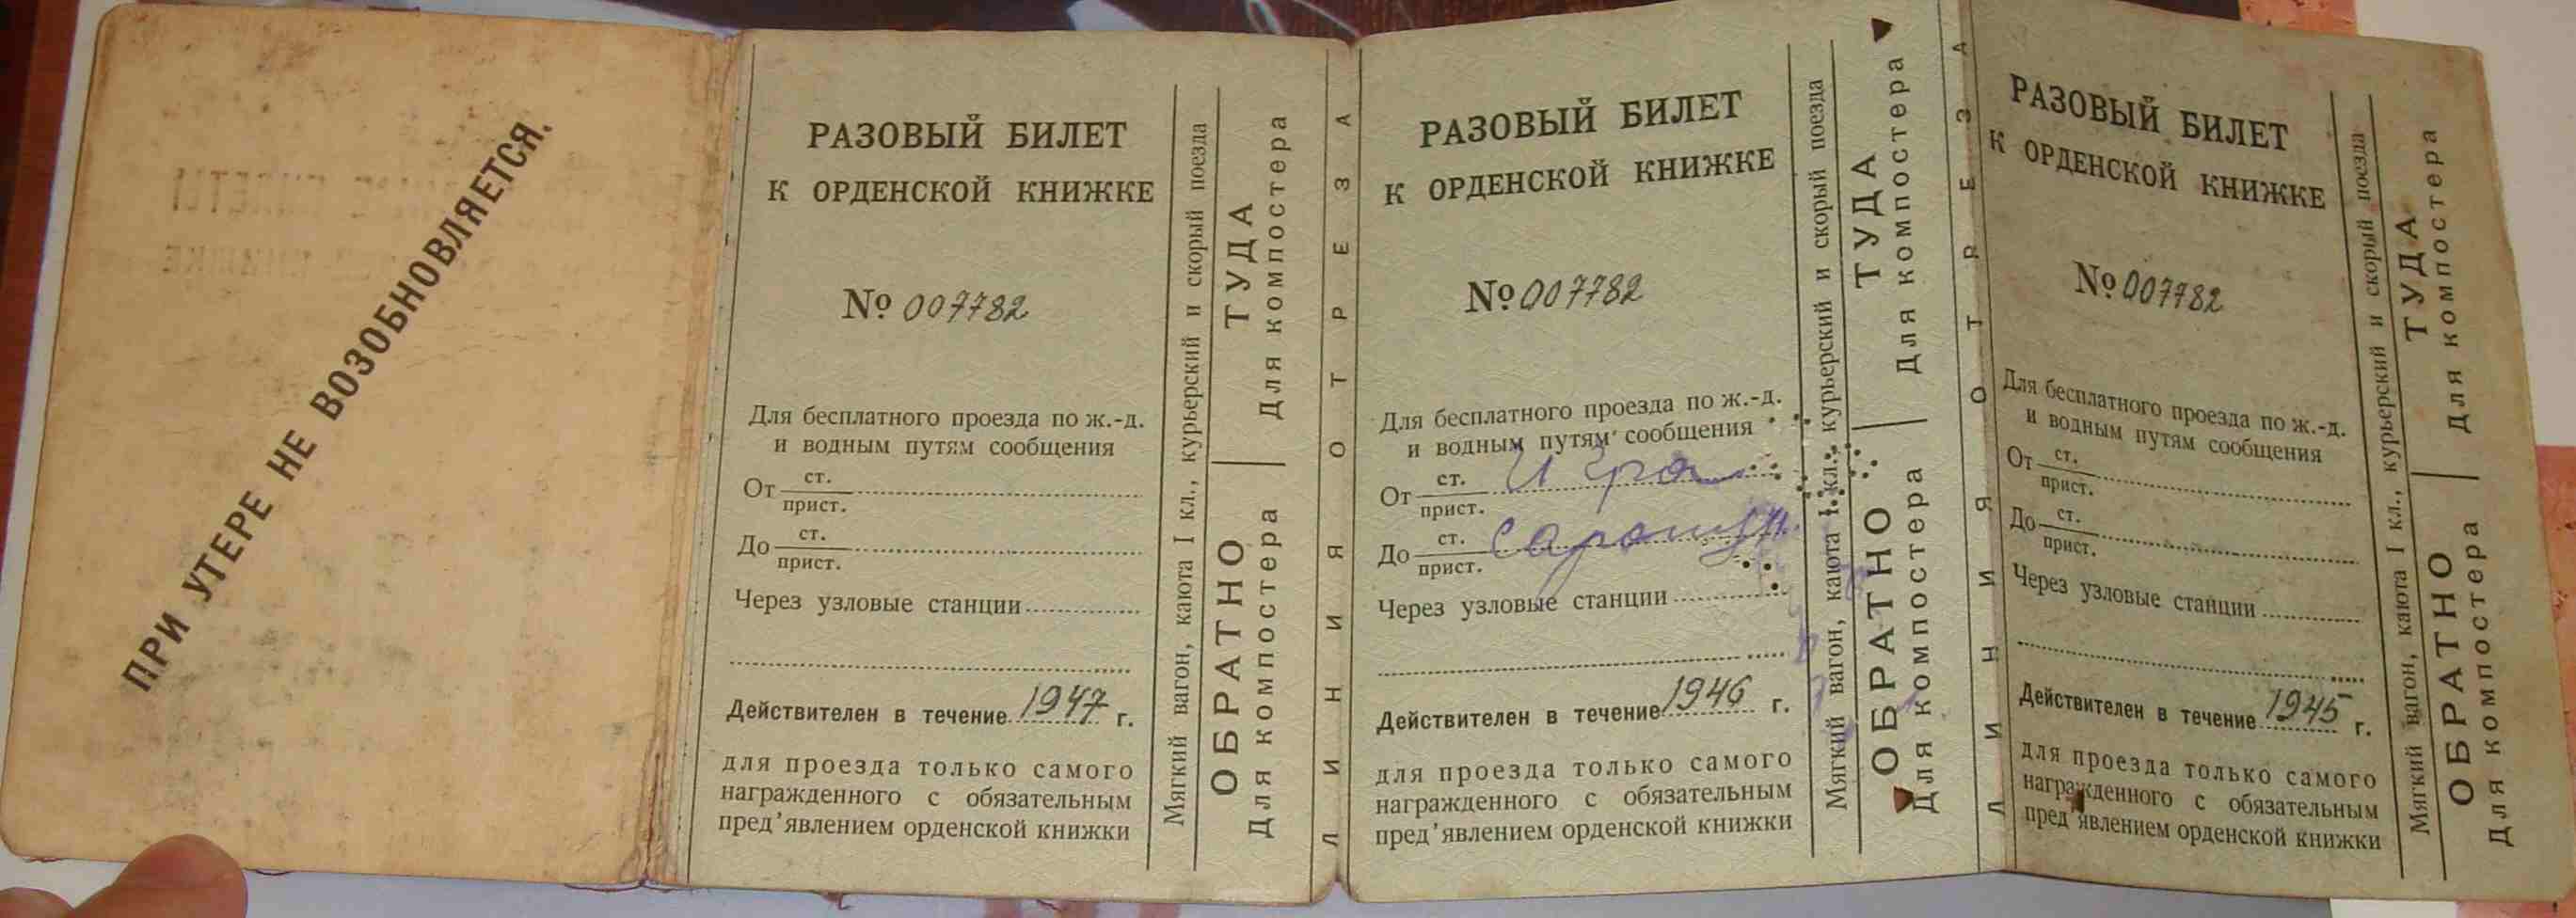 ПРИ УТЕРЕ НЕ ВОЗОБНОВЛЯЕТСЯ.
РАЗОВЫЙ БИЛЕТ
К ОРДЕНСКОЙ КНИЖКЕ
№ 007782
Для бесплатного проезда по ж.-д.
и водным путям сообщения
От ст.
прист.
До ст.
прист.
Через узловые станции
Действителен в течение 1947 г.
для проезда только самого
награжденного с обязательным
пред'явлением орденской книжки
Мягкий вагон, каюта I кл., курьерский и скорый поезда
ОБРАТНО ТУДА
Для компостера Для компостера
ЛИНИЯ ОТРЕЗА
РАЗОВЫЙ БИЛЕТ
К ОРДЕНСКОЙ КНИЖКЕ
№ 007782
Для бесплатного проезда по ж.-д.
и водным путям сообщения
От ст.
прист.
До ст.
прист.
Через узловые станции
Действителен в течение 1946 г.
для проезда только самого
награжденного с обязательным
пред'явлением орденской книжки
Мягкий вагон, каюта I кл., курьерский и скорый поезда
ОБРАТНО ТУДА
Для компостера Для компостера
ЛИНИЯ ОТРЕЗА
РАЗОВЫЙ БИЛЕТ
К ОРДЕНСКОЙ КНИЖКЕ
№ 007782
Для бесплатного проезда по ж.-д.
и водным путям сообщения
От ст.
прист.
До ст.
прист.
Через узловые станции
Действителен в течение 1945 г.
для проезда только самого
награжденного с обязательным
пред'явлением орденской книжки
Мягкий вагон, каюта I кл., курьерский и скорый поезда
ОБРАТНО ТУДА
Для компостера Для компостера